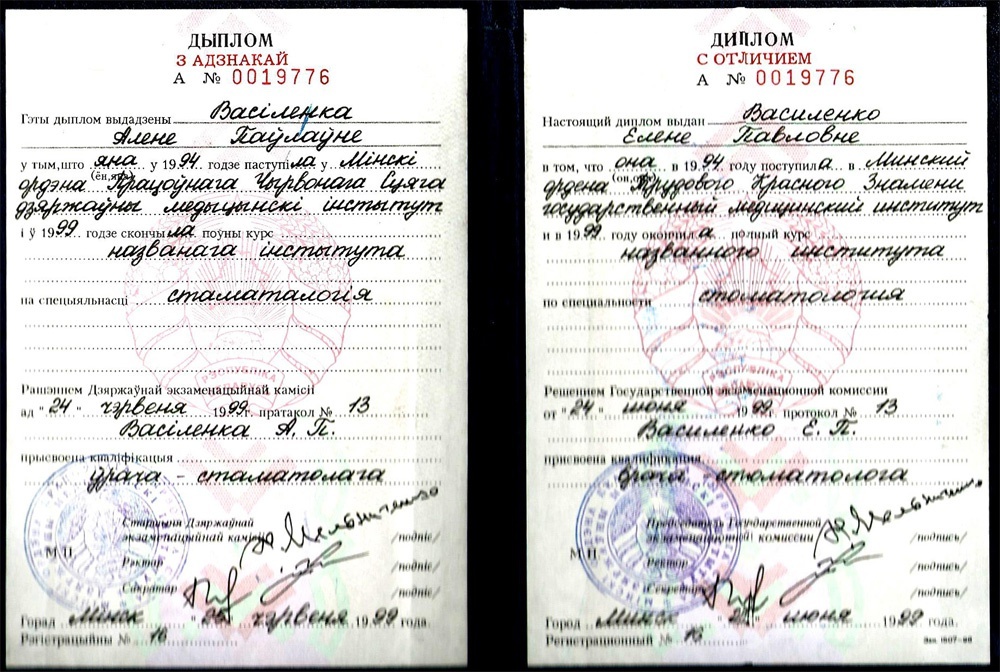 ДЫПЛОМ
З АДЗНАКАЙ
А № 0019776
Гэты дыплом выдадзены Васіленка
Алене Паўлаўне
у тым, што яна у 1994 годзе паступіла у Мінскі
(ён, яна)
ордэна Працоўнага Чырвонага Сцяга
дзяржаўны медыцынскі інстытут
і ў 1999 годзе скончыла поўны курс
названага інстытута
на спецыяльнасці стаматалогія
Рашэннем Дзяржаўнай экзаменацыйнай камісіі
ад "24" чэрвеня 1999 г. пратакол № 13
Васіленка А. П.
прысвоена кваліфікацыя
урача - стаматолага
Старшыня Дзяржаўнай
экзаменацыйнай камісіі /подпіс/
М.П.
Рэктар /подпіс/
Сакратар /подпіс/
Горад Мінск "25" чэрвеня 1999 года.
Рэгістрацыйны № 16
ДИПЛОМ
С ОТЛИЧИЕМ
А № 0019776
Настоящий диплом выдан Василенко
Елене Павловне
в том, что она в 1994 году поступила в Минский
(он, она)
ордена Трудового Красного Знамени
государственный медицинский институт
и в 1999 году окончила полный курс
названного института
по специальности стоматология
РЭСПУБЛІКА
Решением Государственной экзаменационной комиссии
от "24" июня 1999 г. протокол № 13
Василенко Е. П.
присвоена квалификация
врача - стоматолога
Председатель Государственной
экзаменационной комиссии /подпись/
М.П.
Ректор /подпись/
Секретарь /подпись/
Город Минск "25" июня 1999 года.
Регистрационный № 16